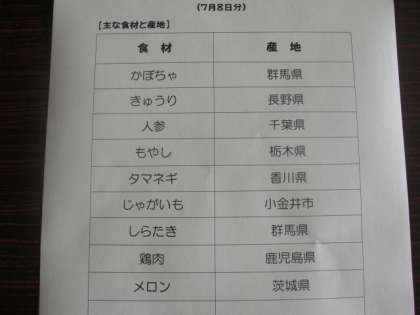 (7月8日分)
【主な食材と産地】
食材 産地
かぼちゃ 群馬県
きゅうり 長野県
人参 千葉県
もやし 栃木県
タマネギ 香川県
じゃがいも 小金井市
しらたき 群馬県
鶏肉 鹿児島県
メロン 茨城県